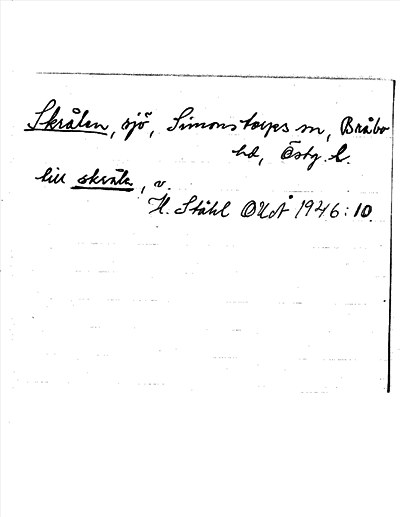 Skrålen, sjö, Simonstorps sn, Bråbo
hd, Östg. l.
till skråla, v.
H. Ståhl OUÅ 1946:10